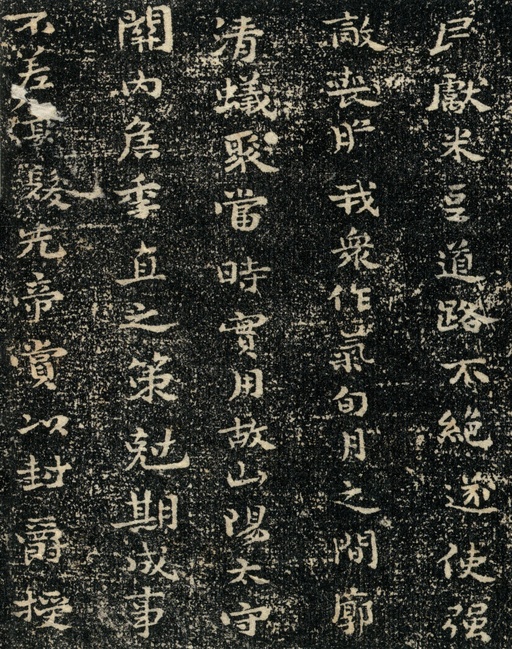 戶獻米豆道路不絕遂使強
敵喪膽我衆作氣旬月之間廓
清蟻聚當時實用故山陽太守
關內侯季直之策尅期成事
不差豪髮先帝賞以封爵授